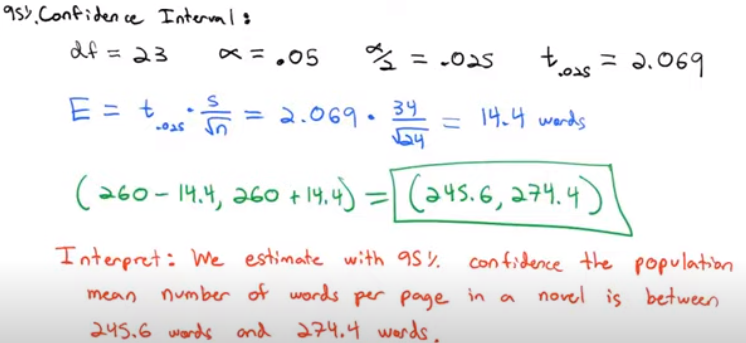 95% Confidence Interval:
df = 23 α = .05 α/2 = .025 t.025 = 2.069
E = t.025 · s/√n = 2.069 · 34/√24 = 14.4 words
(260 - 14.4, 260 + 14.4) = (245.6, 274.4)
Interpret: We estimate with 95% confidence the population
mean number of words per page in a novel is between
245.6 words and 274.4 words.